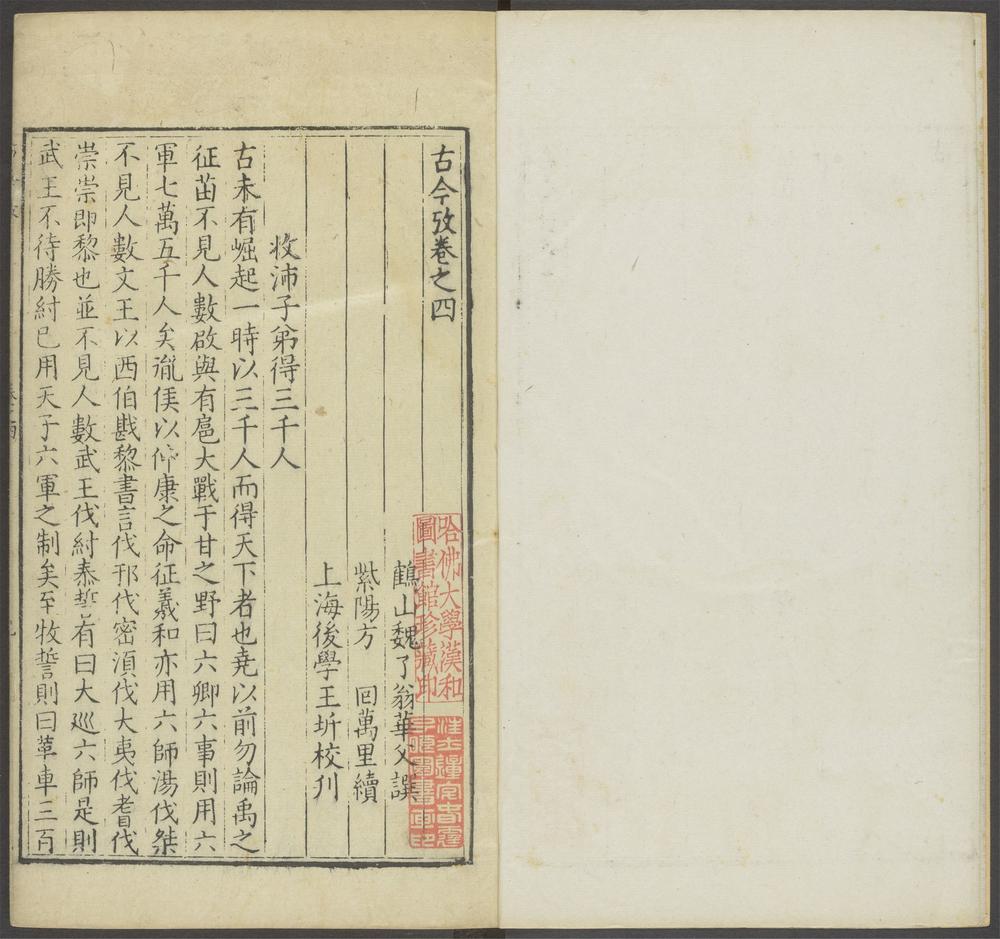 古今攷卷之四
鶴山魏了翁華父譔
紫陽方 回萬里續
上海後學王圻校刋
收沛子弟得三千人
古未有崛起一時以三千人而得天下者也堯以前勿論禹之
征苗不見人數啟與有扈大戰于甘之野曰六卿六事則用六
軍七萬五千人矣胤侯以仲康之命征羲和亦用六師湯伐桀
不見人數文王以西伯戡黎書言伐邘伐密須伐犬夷伐耆伐
崇崇即黎也並不見人數武王伐紂泰誓有曰大廵六師是則
武王不待勝紂已用天子六軍之制矣至牧誓則曰革車三百
哈佛大學漢和
圖書館珍藏印